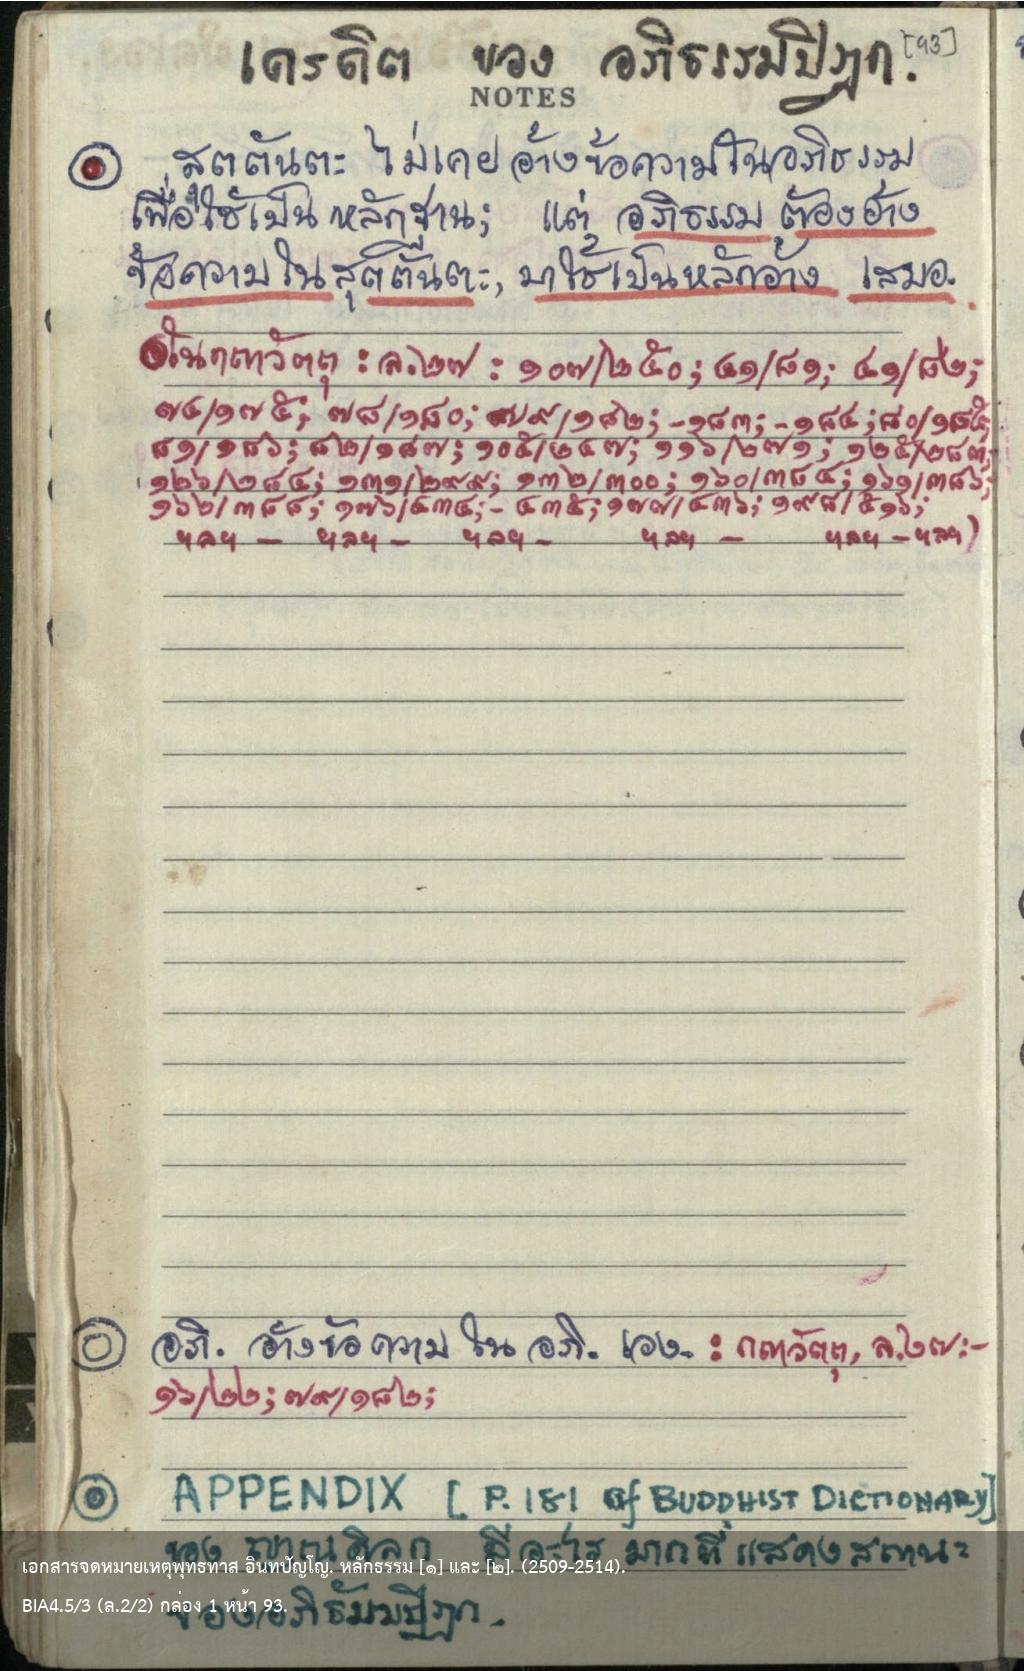 เครดิต ของ อภิธรรมปิฎก. [93]
NOTES
สุตตันตะ ไม่เคยอ้างข้อความในอภิธรรม
เพื่อใช้เป็นหลักฐาน; แต่ อภิธรรม ต้องอ้าง
ข้อความในสุตตันตะ, มาใช้เป็นหลักอ้าง เสมอ.
ในกถาวัตถุ : ล.๒๗ : ๑๐๗/๒๕๐; ๔๑/๘๑; ๔๑/๘๒;
๗๔/๑๗๕; ๗๘/๑๘๐; ๗๙/๑๘๒; -๑๘๓; -๑๘๔; ๘๐/๑๘๕;
๘๑/๑๘๖; ๘๒/๑๘๗; ๑๐๕/๒๔๗; ๑๑๖/๒๗๑; ๑๒๕/๒๘๓;
๑๒๖/๒๘๔; ๑๓๑/๒๙๙; ๑๓๒/๓๐๐; ๑๖๐/๓๘๔; ๑๖๑/๓๘๖;
๑๖๒/๓๘๘; ๑๗๖/๔๓๔; - ๔๓๕; ๑๗๗/๔๓๖; ๑๙๘/๕๑๖;
ฯลฯ — ฯลฯ — ฯลฯ — ฯลฯ — ฯลฯ — ฯลฯ)
อภิ. อ้างข้อความ ใน อภิ. เอง. : กถาวัตถุ, ล.๒๗:-
๑๖/๒๒; ๗๙/๑๘๒;
APPENDIX [ P. 181 of BUDDHIST DICTIONARY]
ของ ญาณดิลก มีอะไร มากที่ แสดงสถานะ
ของอภิธัมมปิฎก.
เอกสารจดหมายเหตุพุทธทาส อินทปัญโญ. หลักธรรม [๑] และ [๒]. (2509-2514).
BIA4.5/3 (ล.2/2) กล่อง 1 หน้า 93.